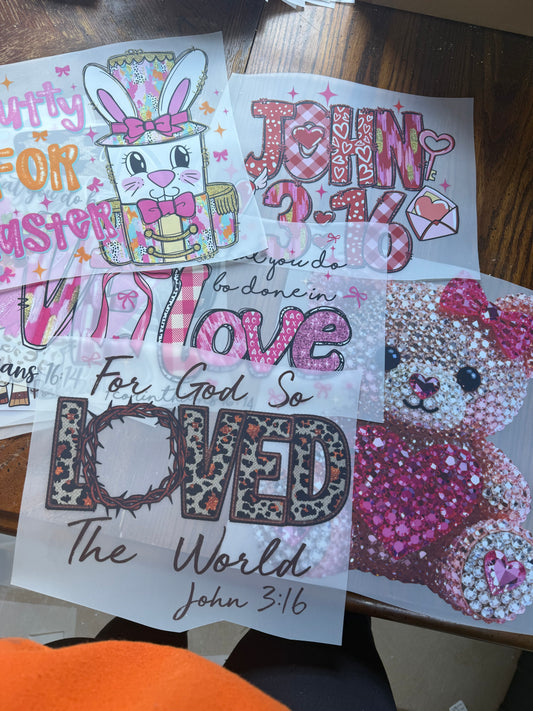 utty
FOR
aster
JOHN
3:16
you do
be done in
Love
ans 16:14
For God So
LOVED
The World
John 3:16